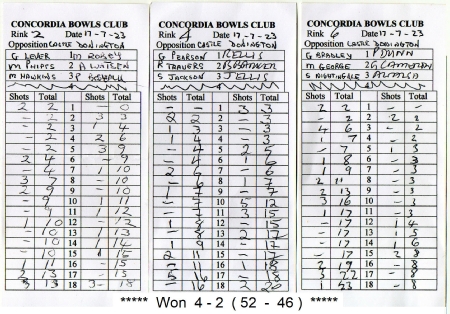 CONCORDIA BOWLS CLUB
Rink 2 Date 17-7-23
Opposition CASTLE DONINGTON
G LEVER 1 M ROBEY
M PHIPPS 2 A
M HAWKINS 3 P
Shots Total Shots Total
2 2 1 - 0
- 2 2 3 3
- 2 3 1 4
- 2 4 2 6
- 2 5 3 9
2 4 6 - 9
- 4 7 1 10
3 7 8 - 10
2 9 9 - 10
- 9 10 1 11
- 9 11 1 12
1 10 12 - 12
- 10 13 1 13
- 10 14 1 14
- 10 15 1 15
1 11 16 - 15
2 13 17 - 15
- 13 18 3 - 18
CONCORDIA BOWLS CLUB
Rink 4 Date 17-7-23
Opposition CASTLE DONINGTON
G PEARSON 1 R ELLIS
R TRAVERS 2
S JACKSON 3 J ELLIS
Shots Total Shots Total
- - 1 3 3
2 2 2 - 3
1 3 3 - 3
1 4 4 - 3
- 4 5 2 5
- 4 6 1 6
2 6 7 - 6
- 6 8 1 7
1 7 9 - 7
- 7 10 5 12
- 7 11 3 15
1 8 12 - 15
- 8 13 2 17
1 9 14 - 17
2 11 15 - 17
- 11 16 1 18
5 16 17 - 18
- 16 18 2 20
CONCORDIA BOWLS CLUB
Rink 6 Date 17-7-23
Opposition CASTLE DONINGTON
G BRADLEY 1 P DUNN
M GEORGE 2
S NIGHTINGALE 3
Shots Total Shots Total
2 2 1 - -
- 2 2 2 2
4 6 3 - 2
1 7 4 - 2
- 7 5 1 3
1 8 6 - 3
1 9 7 - 3
2 11 8 - 3
2 13 9 - 3
3 16 10 - 3
1 17 11 - 3
- 17 12 1 4
- 17 13 1 5
- 17 14 1 6
- 17 15 2 8
2 19 16 - 8
3 22 17 - 8
1 23 18 - 8
***** Won 4 - 2 ( 52 - 46 ) *****